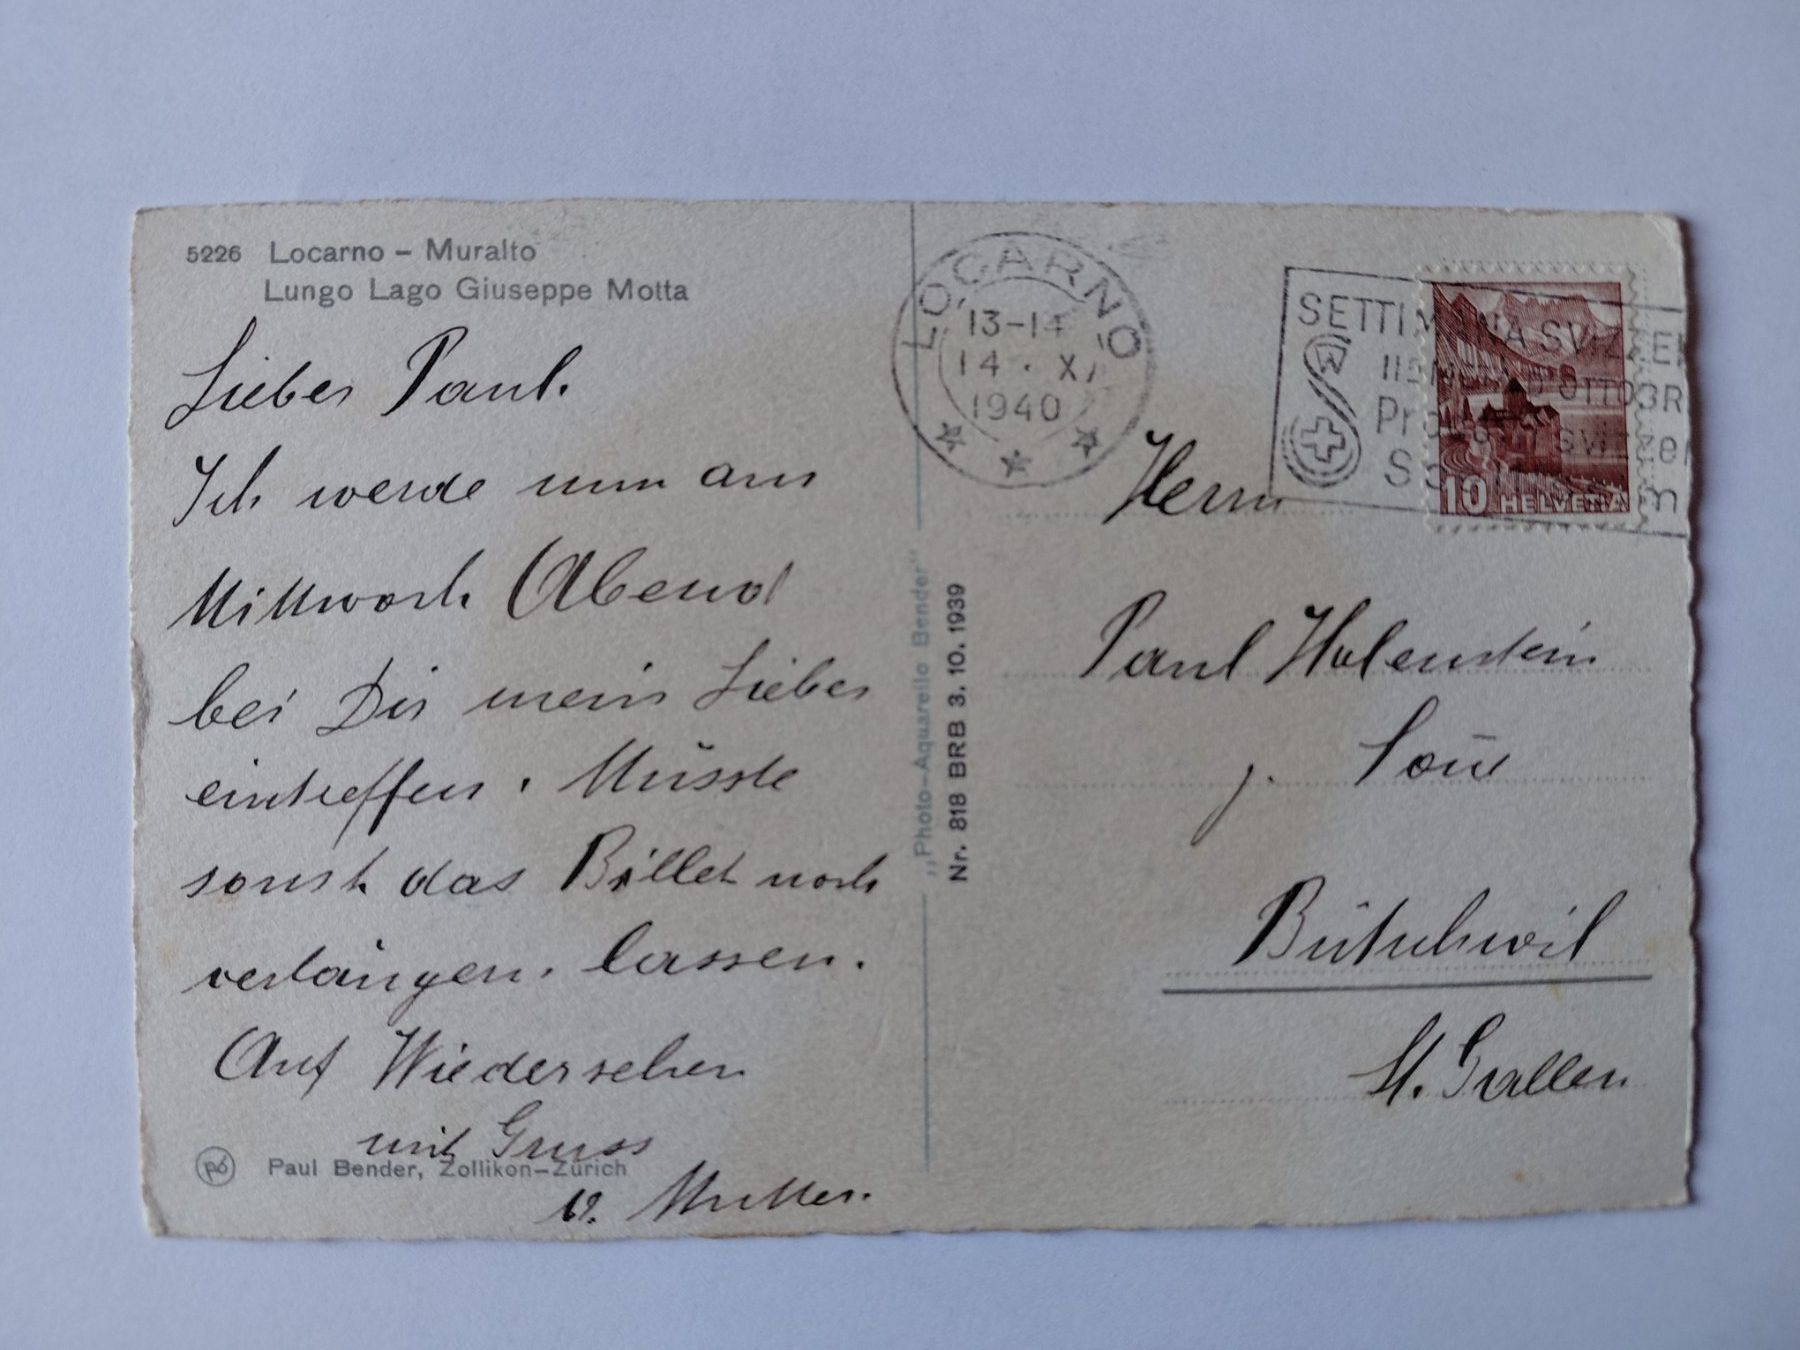 5226 Locarno – Muralto
Lungo Lago Giuseppe Motta
Lieber Paul.
Ich werde nun am
Mittwoch Abend
bei Dir mein Lieber
eintreffen. Müsste
sonst das Billet noch
verlängern. lassen.
Auf Wiedersehen
mit Gruss
Paul Bender, Zollikon–Zürich
Mutter.
„Photo–Aquarello Bender"
Nr. 818 BRB 3. 10. 1939
LOCARNO
13–14
14 · X
1940
SETTIMANA SVIZZE
10 HELVETIA
Herrn
Paul Holenstein
z. Löw
Bütschwil
St. Gallen